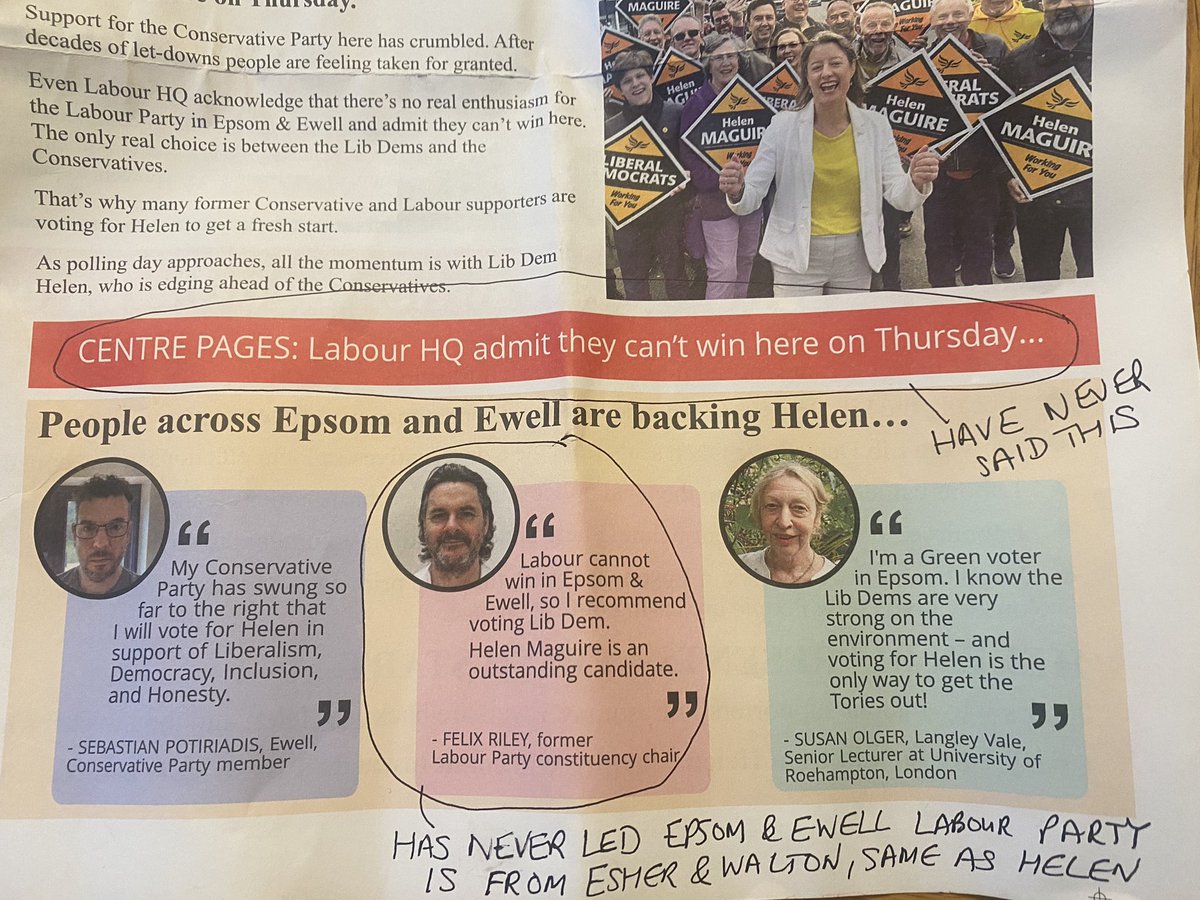 on Thursday.
Support for the Conservative Party here has crumbled. After
decades of let-downs people are feeling taken for granted.
Even Labour HQ acknowledge that there's no real enthusiasm for
the Labour Party in Epsom & Ewell and admit they can't win here.
The only real choice is between the Lib Dems and the
Conservatives.
That's why many former Conservative and Labour supporters are
voting for Helen to get a fresh start.
As polling day approaches, all the momentum is with Lib Dem
Helen, who is edging ahead of the Conservatives.
MAGUIRE
Working
For You
MAGUIRE
Helen
MAGUIRE
Helen
MAGUIRE
Working
For You
ERAL
CRATS
Helen
MAGUIR
Working
For You
LIBERAL
MOCRATS
Working
For You
CENTRE PAGES: Labour HQ admit they can't win here on Thursday...
HAVE NEVER
SAID THIS
People across Epsom and Ewell are backing Helen...
“
My Conservative
Party has swung so
far to the right that
I will vote for Helen in
support of Liberalism,
Democracy, Inclusion,
and Honesty.
”
- SEBASTIAN POTIRIADIS, Ewell,
Conservative Party member
“
Labour cannot
win in Epsom &
Ewell, so I recommend
voting Lib Dem.
Helen Maguire is an
outstanding candidate.
”
- FELIX RILEY, former
Labour Party constituency chair
“
I'm a Green voter
in Epsom. I know the
Lib Dems are very
strong on the
environment – and
voting for Helen is the
only way to get the
Tories out!
”
- SUSAN OLGER, Langley Vale,
Senior Lecturer at University of
Roehampton, London
HAS NEVER LED EPSOM & EWELL LABOUR PARTY
IS FROM ESHER & WALTON, SAME AS HELEN